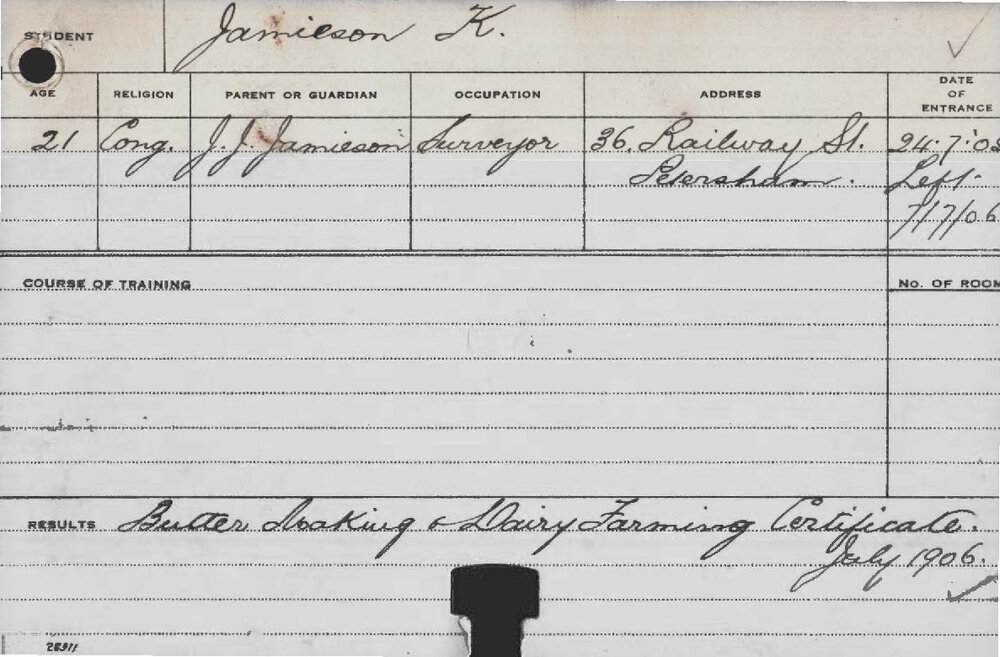 STUDENT Jamieson K.
AGE RELIGION PARENT OR GUARDIAN OCCUPATION ADDRESS DATE OF ENTRANCE
21 Cong. J. J. Jamieson Surveyor 36. Railway St. 24.7.'05
Petersham. Left
7/7/06
COURSE OF TRAINING No. OF ROOM
RESULTS Butter Making & Dairy Farming Certificate.
July 1906.